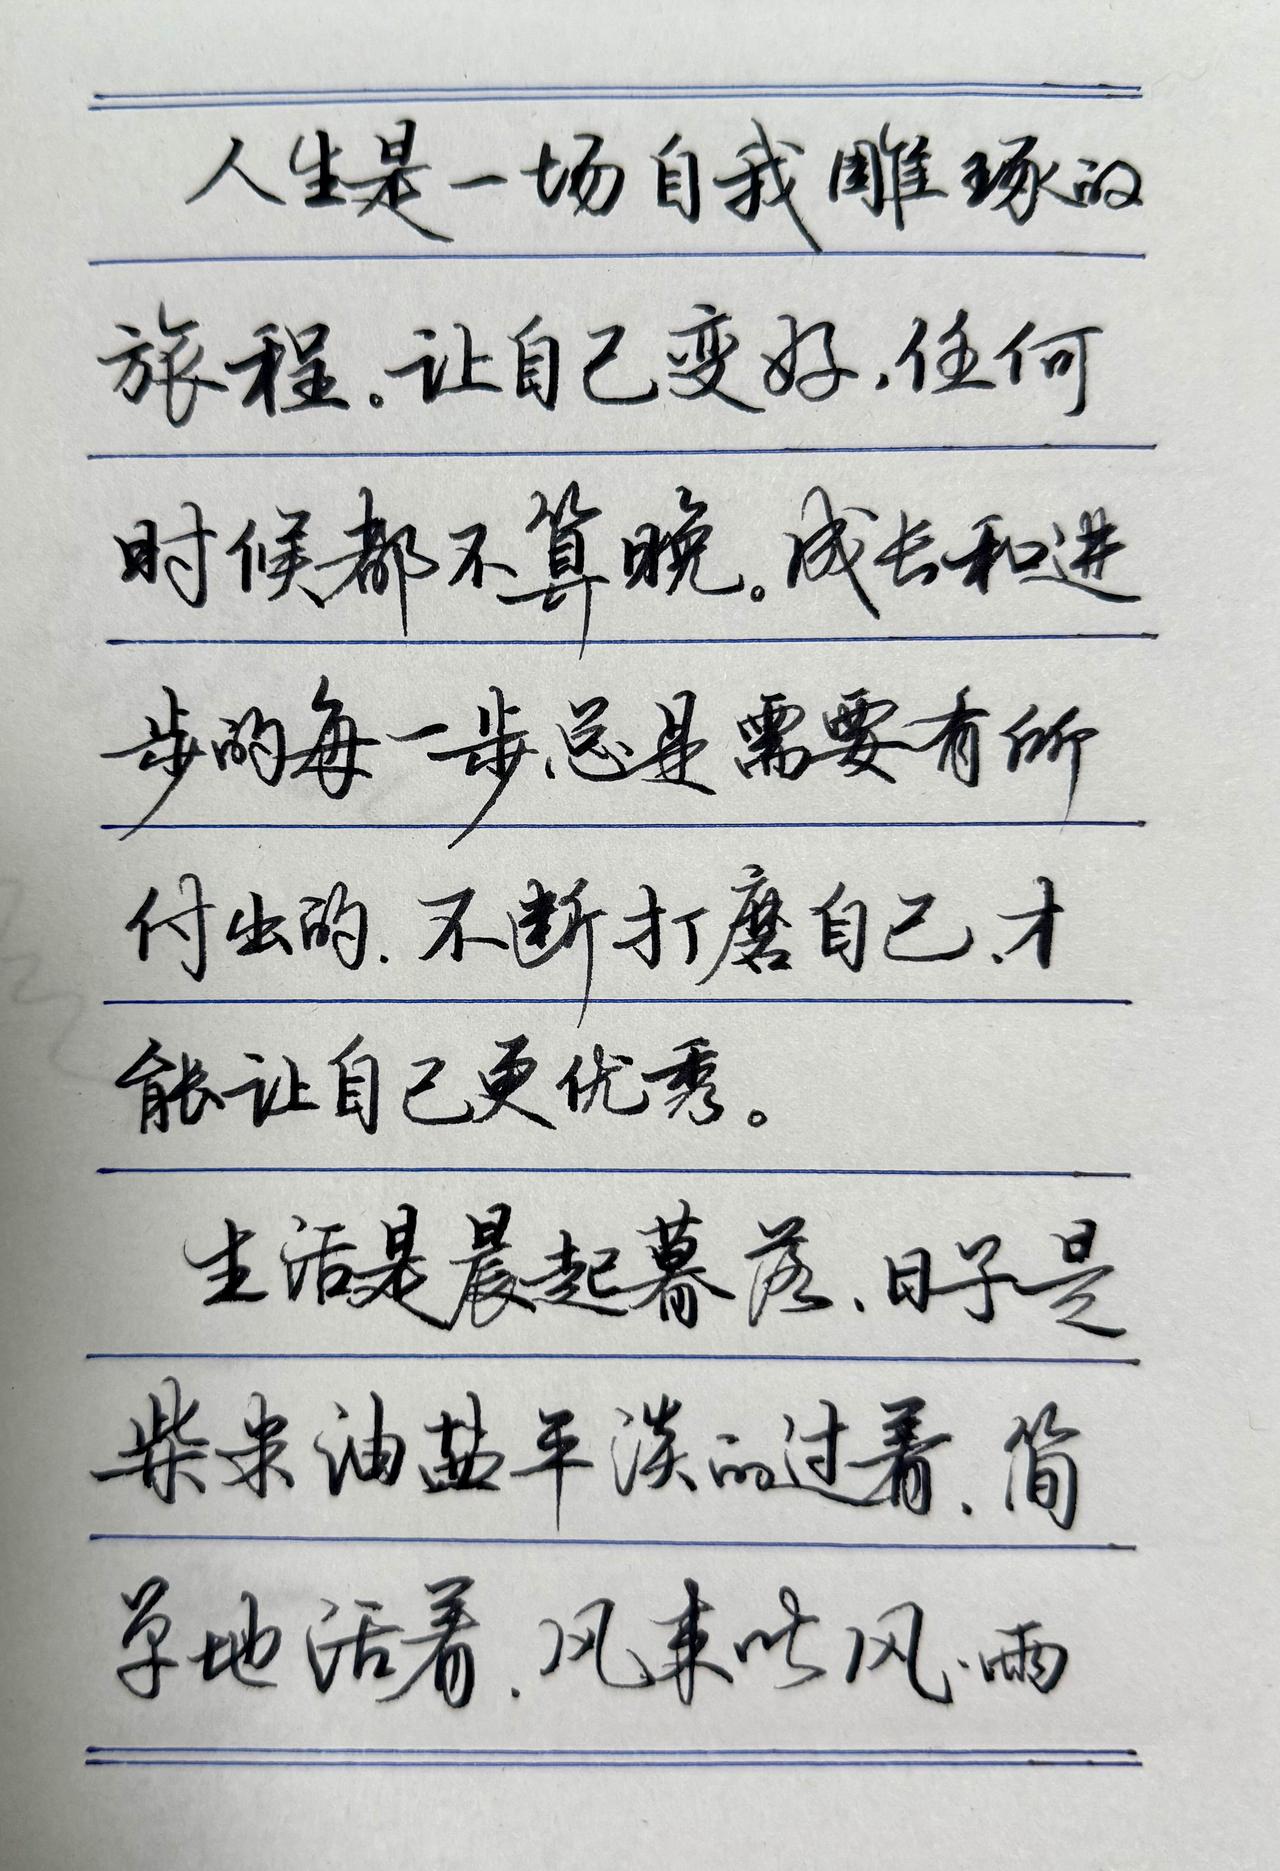 人生是一场自我雕琢的
旅程。让自己变好,任何
时候都不算晚。成长和进
步的每一步,总是需要有所
付出的,不断打磨自己,才
能让自己更优秀。
生活是晨起暮落,日子是
柴米油盐平淡的过着,简
单地活着,风来听风,雨